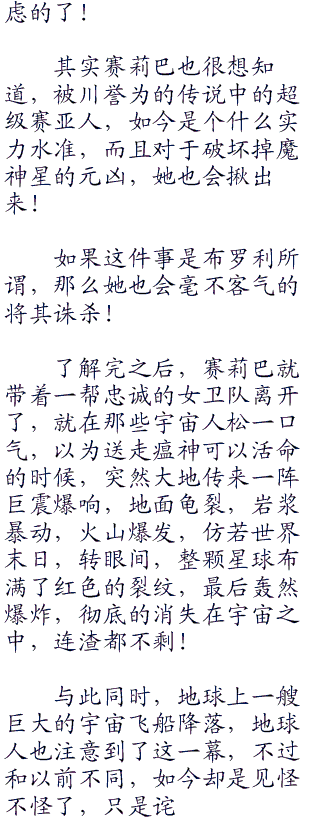 虑的了！
其实赛莉巴也很想知
道，被川誉为的传说中的超
级赛亚人，如今是个什么实
力水准，而且对于破坏掉魔
神星的元凶，她也会揪出
来！
如果这件事是布罗利所
谓，那么她也会毫不客气的
将其诛杀！
了解完之后，赛莉巴就
带着一帮忠诚的女卫队离开
了，就在那些宇宙人松一口
气，以为送走瘟神可以活命
的时候，突然大地传来一阵
巨震爆响，地面龟裂，岩浆
暴动，火山爆发，仿若世界
末日，转眼间，整颗星球布
满了红色的裂纹，最后轰然
爆炸，彻底的消失在宇宙之
中，连渣都不剩！
与此同时，地球上一艘
巨大的宇宙飞船降落，地球
人也注意到了这一幕，不过
和以前不同，如今却是见怪
不怪了，只是诧